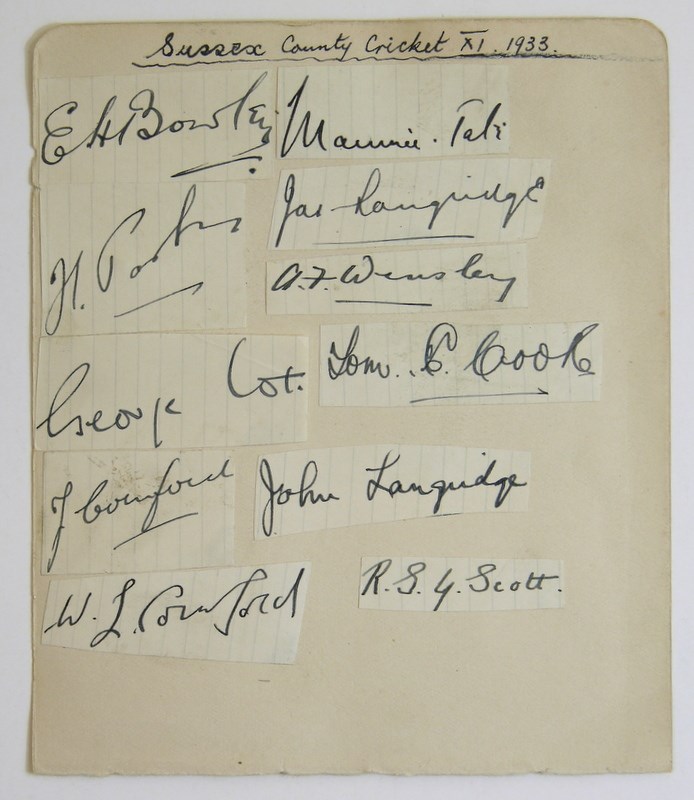 Sussex County Cricket XI. 1933.
E H Bowley
Maurice. Tate
H. Parks
Jas Langridge
A.F. Wensley
George Cox.
Tom. E. Cook
J Cornford
John Langridge
W. L. Cornford
R. S. G. Scott.